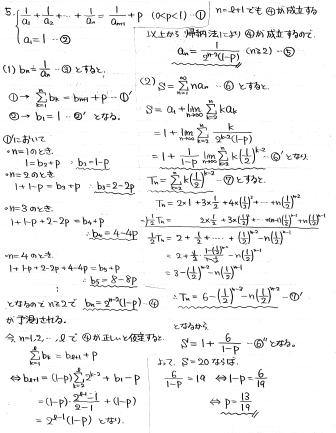 5. { 1/a₁ + 1/a₂ + … + 1/aₙ = 1/aₙ₊₁ + p (0<p<1) …①
a₁ = 1 …②
(1) bₙ = 1/aₙ …③ とすると,
① → Σ[k=1..n] bₖ = bₙ₊₁ + p …①'
② → b₁ = 1 …②' となる。
①'において
・n=1のとき.
1 = b₂ + p ∴ b₂ = 1-p
・n=2のとき.
1+1-p = b₃ + p ∴ b₃ = 2-2p
・n=3のとき.
1+1-p+2-2p = b₄ + p
∴ b₄ = 4-4p
・n=4のとき.
1+1-p+2-2p+4-4p = b₅ + p
∴ b₅ = 8-8p
となるので n≥2で bₙ = 2ⁿ⁻²(1-p) …④
が予測される。
今, n=1,2,…,ℓ で ④が正しいと仮定すると.
Σ[k=1..ℓ] bₖ = bℓ₊₁ + p
⇔ bℓ₊₁ = (1-p) Σ[k=2..ℓ] 2ᵏ⁻² + b₁ - p
= (1-p)・(2^(ℓ-1) - 1)/(2-1) + (1-p)
= 2^(ℓ-1)(1-p) となり.
n=ℓ+1でも④が成立する
以上から 帰納法により④が成立するので.
aₙ = 1/(2ⁿ⁻²(1-p)) (n≥2) …⑤
(2) S = Σ[n=1..∞] naₙ …⑥ とすると.
S = a₁ + lim[n→∞] Σ[k=2..n] kaₖ
= 1 + lim[n→∞] Σ[k=2..n] k/(2ᵏ⁻²(1-p))
= 1 + 1/(1-p) lim[n→∞] Σ[k=2..n] k(1/2)ᵏ⁻² …⑥' となり.
Tₙ = Σ[k=2..n] k(1/2)ᵏ⁻² …⑦ とすると.
Tₙ = 2×1 + 3×1/2 + 4×(1/2)² + … + n(1/2)ⁿ⁻²
-) 1/2 Tₙ = 2×1/2 + 3×(1/2)² + … + (n-1)(1/2)ⁿ⁻² + n(1/2)ⁿ⁻¹
1/2 Tₙ = 2 + 1/2 + … + (1/2)ⁿ⁻² - n(1/2)ⁿ⁻¹
= 2 + 1/2・(1-(1/2)ⁿ⁻²)/(1-1/2) - n(1/2)ⁿ⁻¹
= 3 - (1/2)ⁿ⁻² - n(1/2)ⁿ⁻¹
∴ Tₙ = 6 - (1/2)ⁿ⁻³ - n(1/2)ⁿ⁻² …⑦'
となるから.
S = 1 + 6/(1-p) …⑥'' となる。
よって, S=20ならば.
6/(1-p) = 19 ⇔ 1-p = 6/19
⇔ p = 13/19